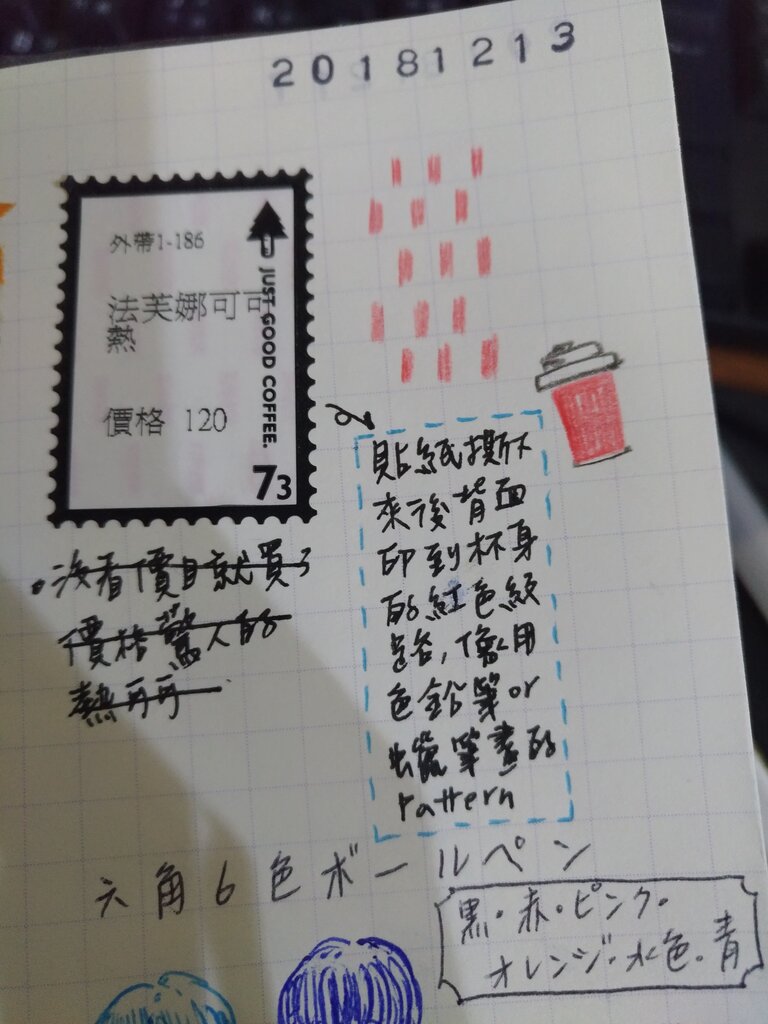 20181213
外帶1-186
法芙娜可可
熱
價格 120
JUST GOOD COFFEE.
73
沒看價目就買了
價格驚人的
熱可可
貼紙撕下
來後背面
印到杯身
的紅色紋
路,像用
色鉛筆or
蠟筆畫的
Pattern
六角6色ボールペン
黒・赤・ピンク・
オレンジ・水色・青